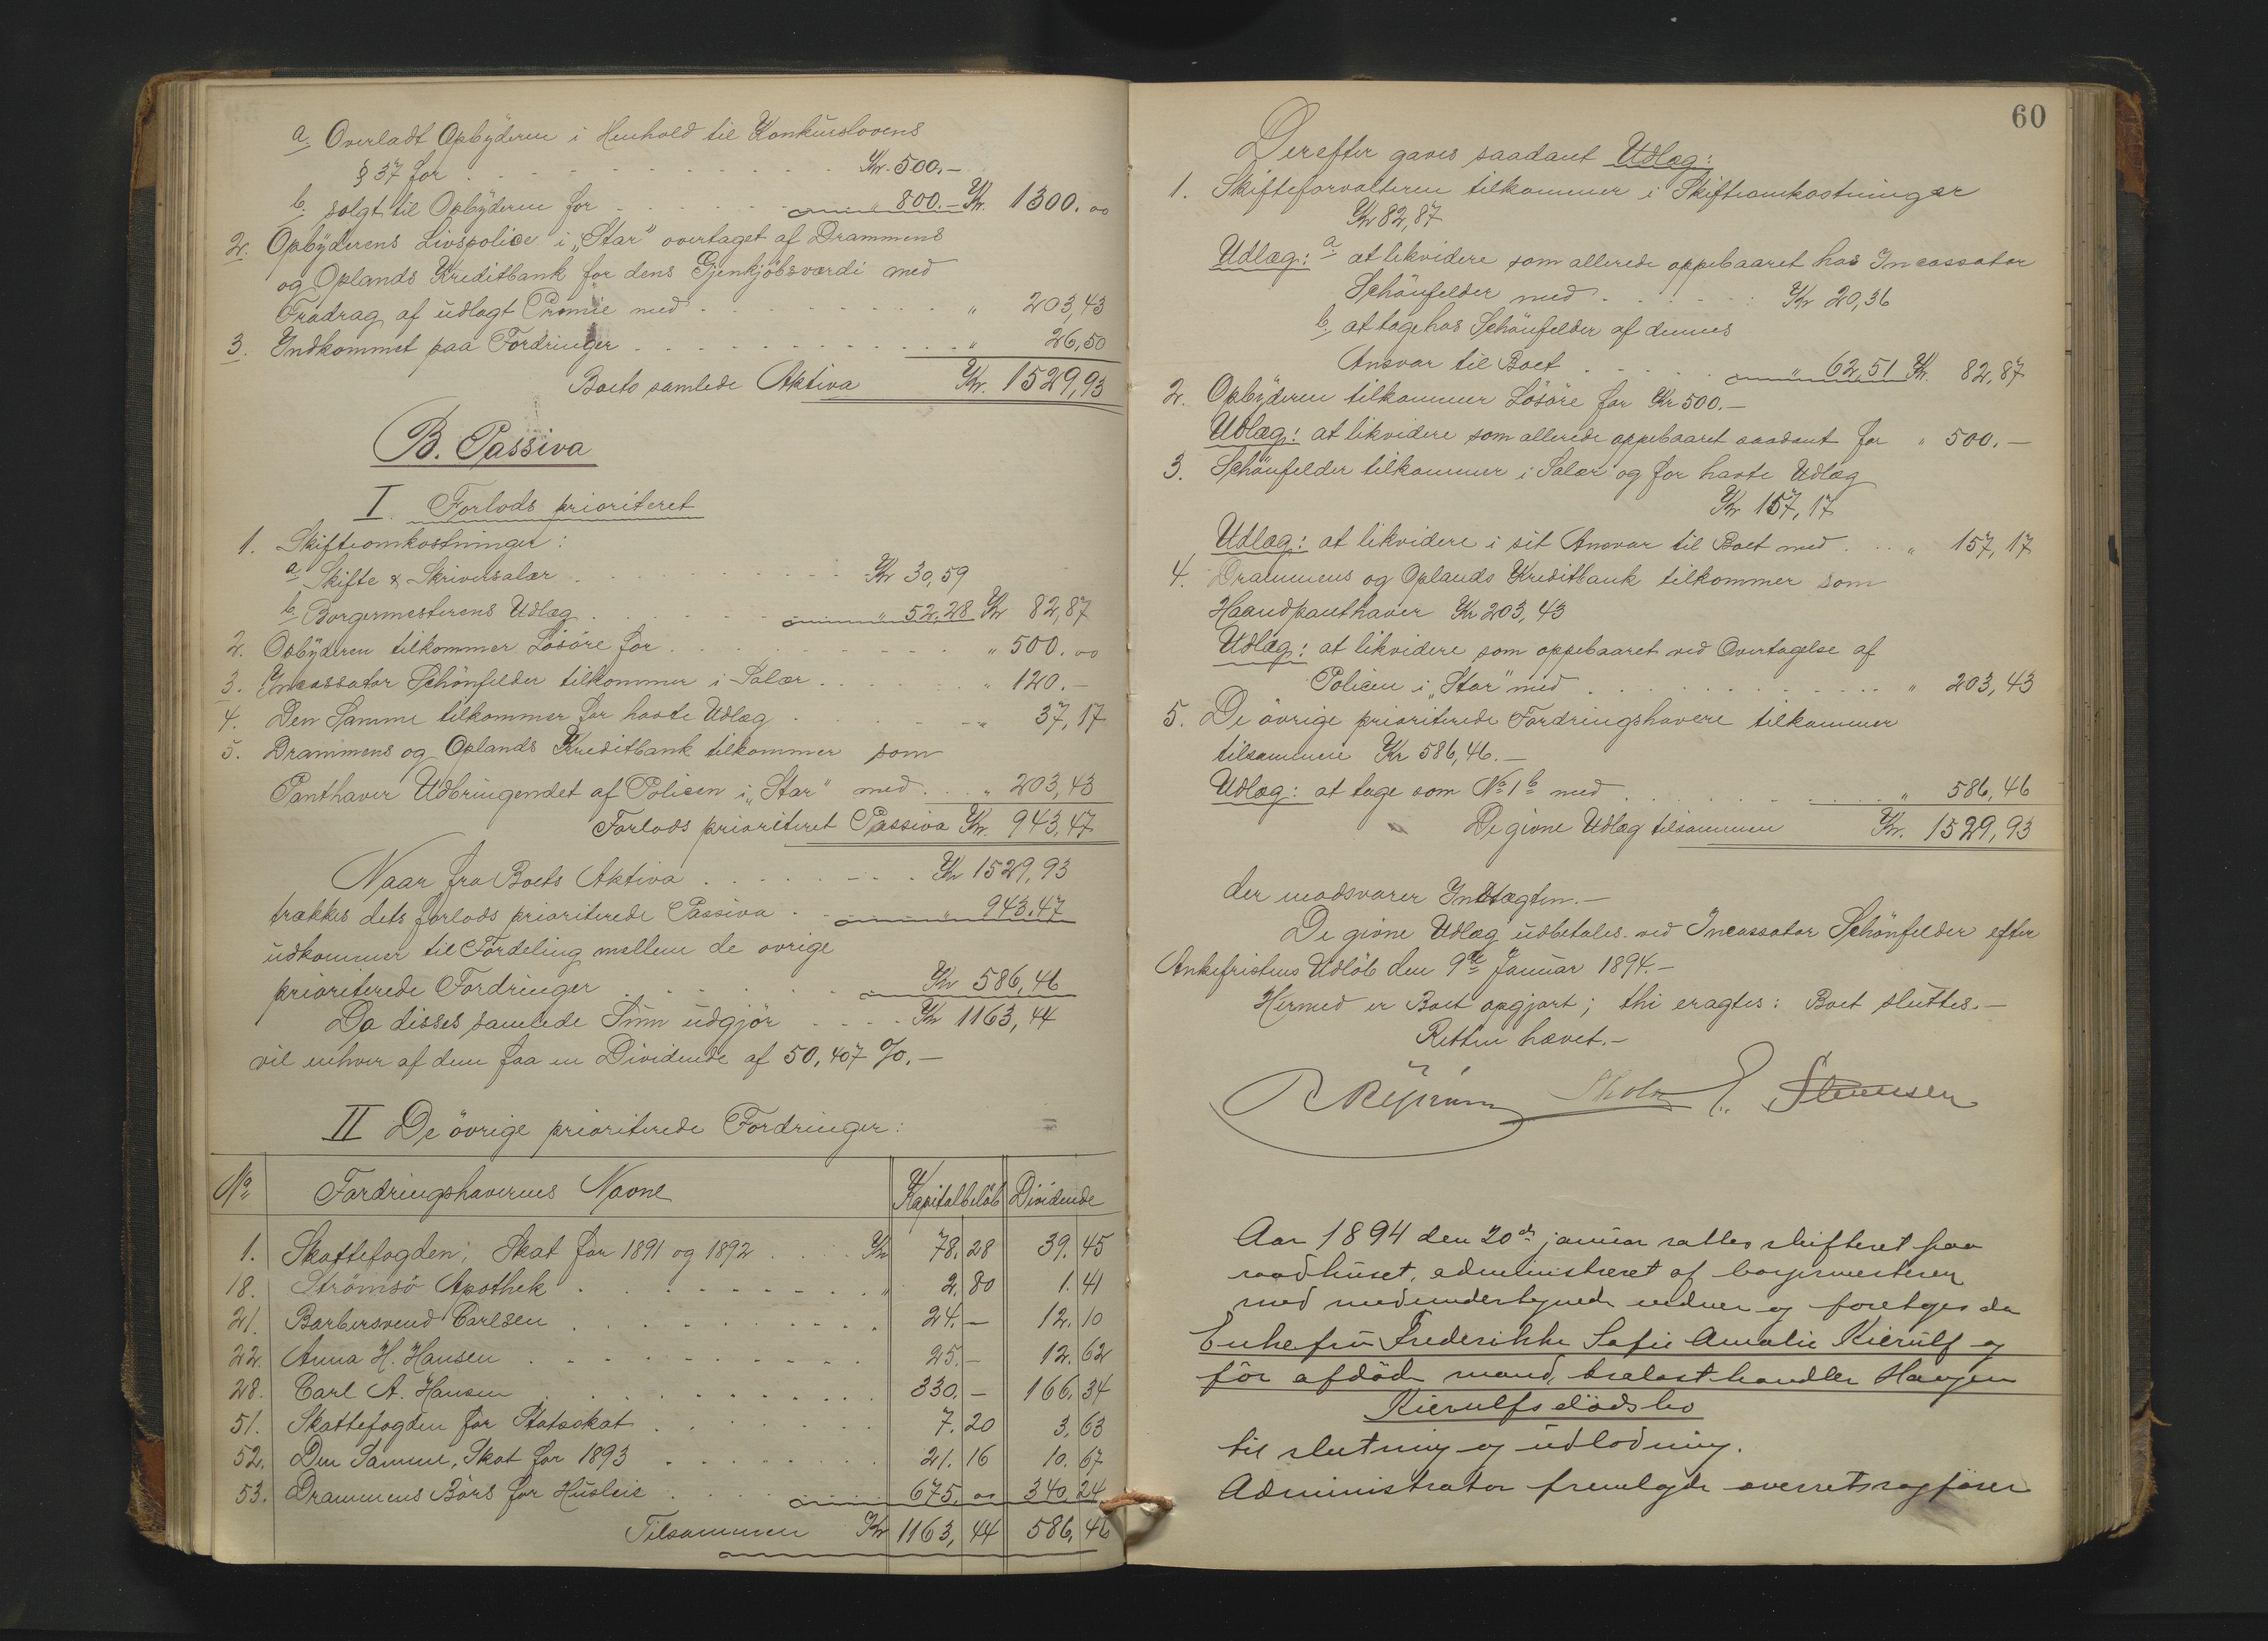 a. Overladt Opbyderen i Henhold til Konkurslovens
§ 37 for . . . Kr. 500.—
b. solgt til Opbyderen for . . . „ 800.— Kr. 1300.00
2. Opbyderens Livspolice i „Star” overtaget af Drammens
og Oplands Kreditbank for dens Gjenkjöbsværdi med
Fradrag af udlagt Premie med . . . „ 203,43
3. Indkommet paa Fordringer . . . „ 26,50
Boets samlede Aktiva Kr. 1529,93
B. Passiva
I. Forlods prioriteret
1. Skifteomkostninger:
a. Skifte & Skriversalær . . . Kr 30,59
b. Borgermesterens Udlæg . . . „ 52,28 Kr 82,87
2. Opbyderen tilkommer Lösöre for . . . „ 500.00
3. Incassator Schönfelder tilkommer i Salær . . . „ 120.—
4. Den Samme tilkommer for havte Udlæg . . . „ 37,17
5. Drammens og Oplands Kreditbank tilkommer som
Panthaver Udbringendet af Policen i „Star” med . . . „ 203,43
Forlods prioriteret Passiva Kr. 943,47
Naar fra Boets Aktiva . . . Kr 1529,93
trækkes dets forlods prioriterede Passiva . . . „ 943.47
udkommer til Fordeling mellem de øvrige
prioriterede Fordringer . . . Kr 586,46
Da disses samlede Sum udgjör . . . Kr 1163,44
vil enhver af dem faa en Dividende af 50,407 %.—
II De övrige prioriterede Fordringer:
No Fordringshavernes Navne Kapitalbelöb Dividende
1. Skattefogden; Skat for 1891 og 1892 . . . Kr 78.28 39.45
18. Strömsö Apothek . . . „ 2.80 1.41
21. Barbersvend Carlsen . . . 24.— 12.10
22. Anna H. Hansen . . . 25.— 12.62
28. Carl A. Hansen . . . 330.— 166.34
51. Skattefogden for Statsskat . . . 7.20 3.63
52. Den Samme, Skat for 1893 . . . 21.16 10.67
53. Drammens Börs for Husleie . . . 675.00 340.24
Tilsammen Kr 1163,44 586,46
60
Derefter gaves saadant Udlæg:
1. Skifteforvalteren tilkommer i Skifteomkostninger
Kr 82,87
Udlæg: a. at likvidere som allerede oppebaaret hos Incassator
Schönfelder med . . . Kr 20,36
b. at tage hos Schönfelder af dennes
Ansvar til Boet . . . „ 62,51 Kr. 82,87
2. Opbyderen tilkommer Lösöre for Kr 500.—
Udlæg: at likvidere som allerede oppebaaret saadant for „ 500.—
3. Schönfelder tilkommer i Salær og for havte Udlæg
Kr 157,17
Udlæg: at likvidere i sit Ansvar til Boet med . . . „ 157,17
4. Drammens og Oplands Kreditbank tilkommer som
Haandpanthaver Kr 203,43
Udlæg: at likvidere som oppebaaret ved Overtagelse af
Policen i „Star” med . . . „ 203,43
5. De övrige prioriterede Fordringshavere tilkommer
tilsammen Kr 586,46.—
Udlæg: at tage som No 1 b med . . . „ 586,46
De givne Udlæg tilsammen Kr. 1529,93
der modsvarer Indtægten.—
De givne Udlæg udbetales ved Incassator Schönfelder efter
Ankefristens Udlöb den 9de Januar 1894.—
Hermed er Boet opgjort; thi eragtes: Boet sluttes.—
Retten hævet.—
Aar 1894 den 20de januar sattes skifteret paa
raadhuset, administreret af borgermesteren
med medundertegnede vidner og foretoges da
Enkefru Frederikke Sofie Amalie Kierulf og
før afdöde mand, trælasthandler Haagen
Kierulfs dödsbo
til slutning og udlodning.
Administrator fremlagde overretssagförer